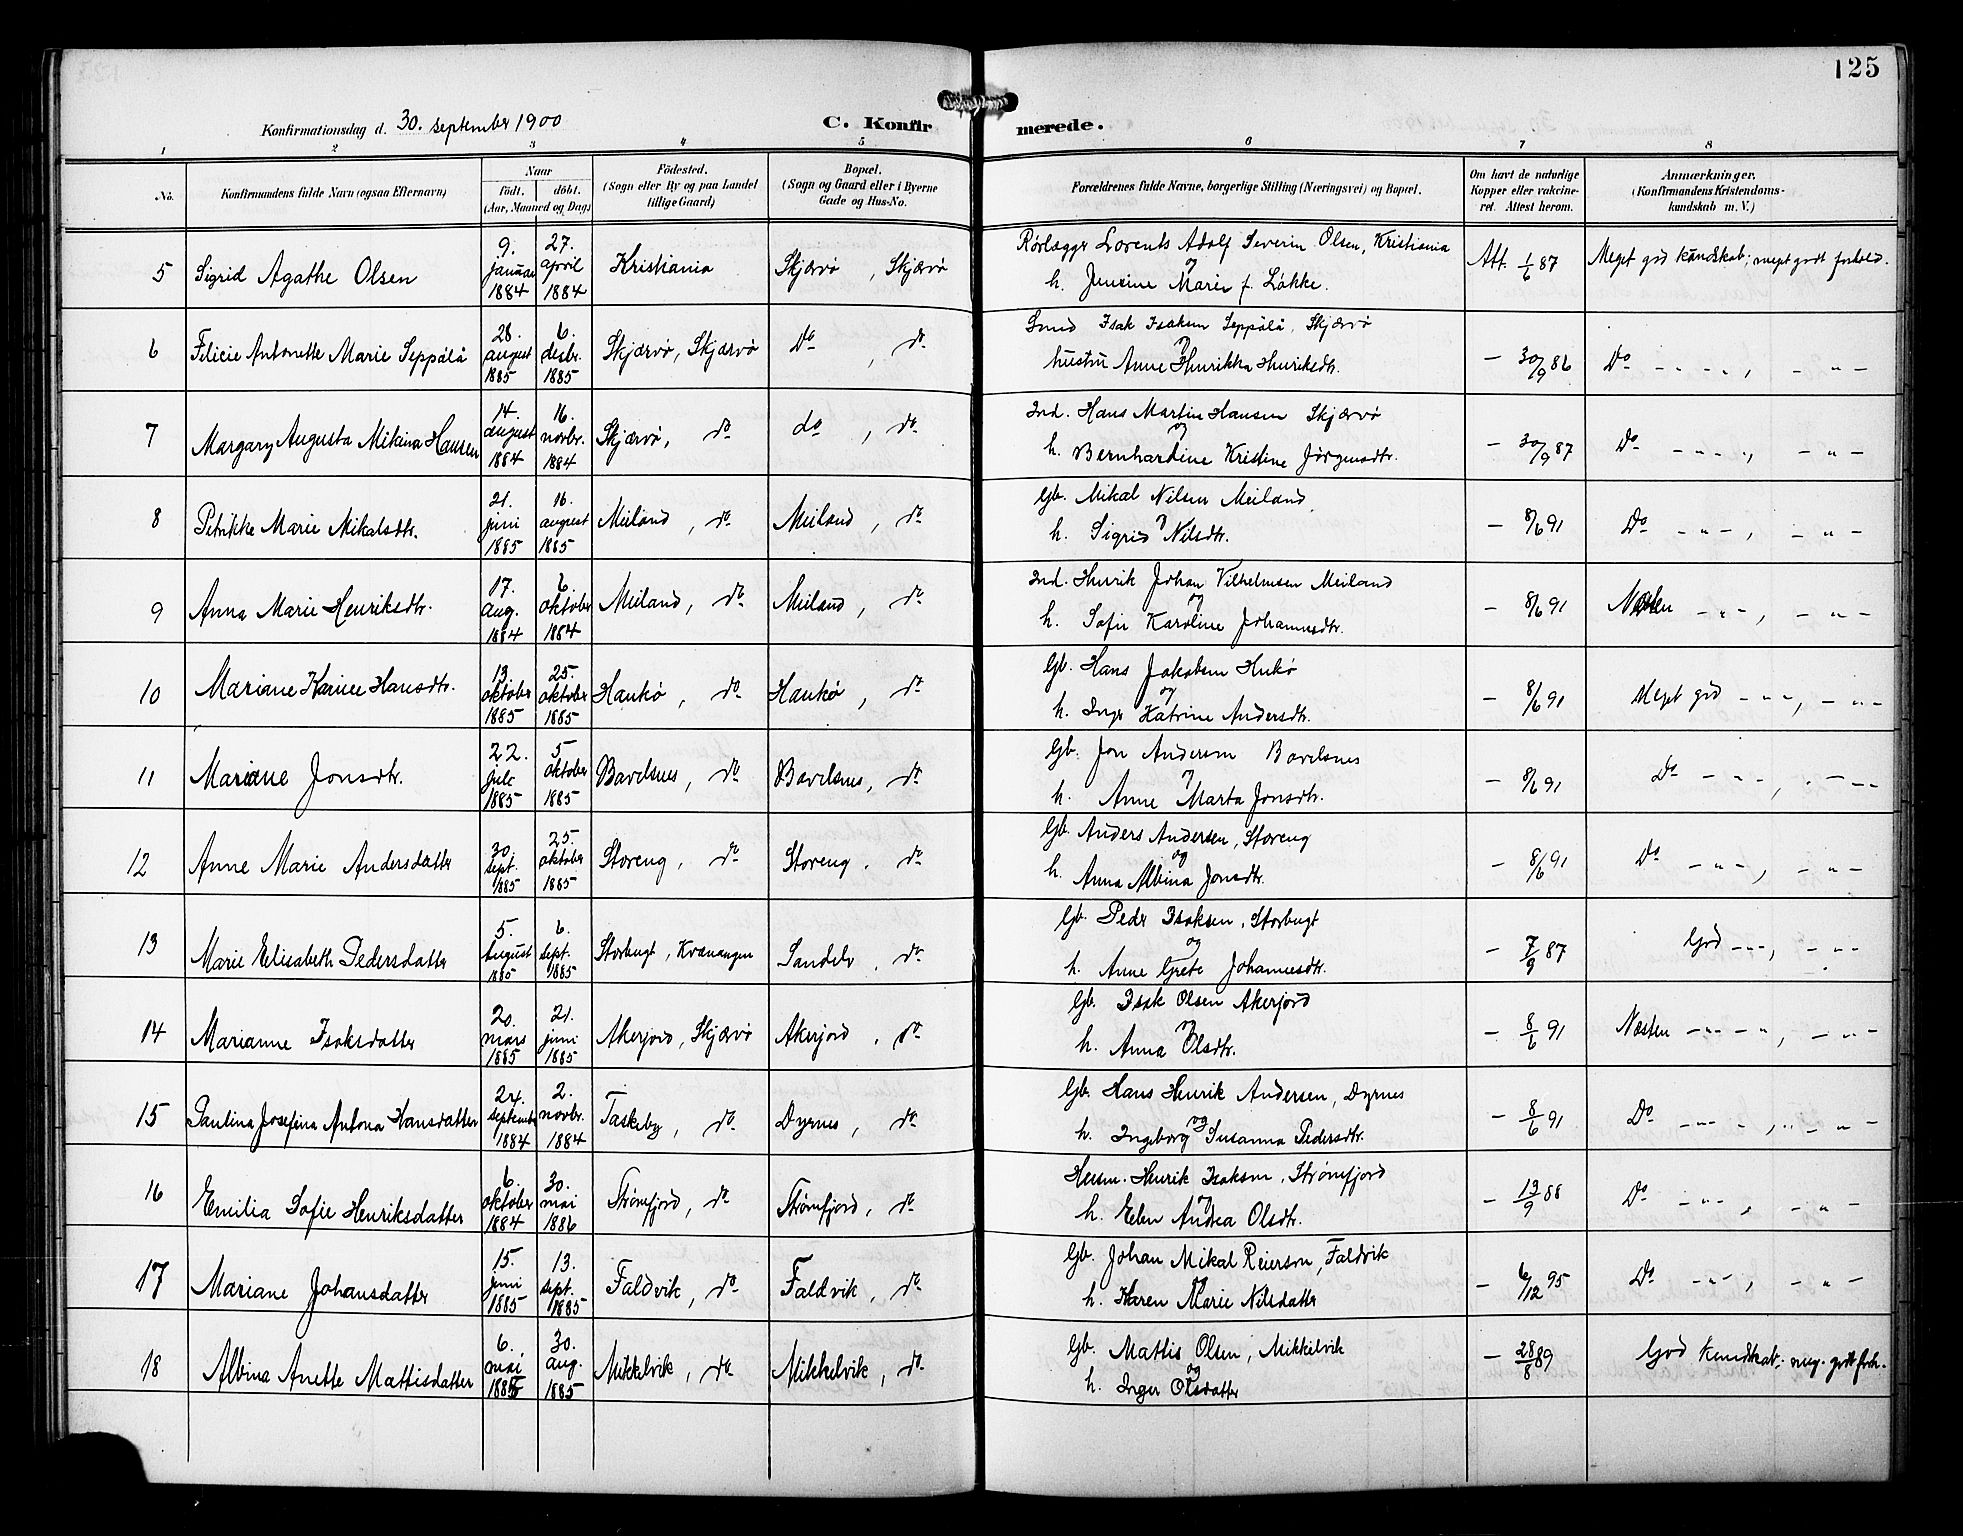 125
Konfirmationsdag d. 30. september 1900 C. Konfirmerede.
1 2 3 4 5 6 7 8
No. Konfirmandens fulde Navn (ogsaa Efternavn) Naar født. døbt. (Aar, Maaned og Dag) Fødested. (Sogn eller By og paa Landet tillige Gaard) Bopæl. (Sogn og Gaard eller i Byerne Gade og Hus-No. Forældrenes fulde Navne, borgerlige Stilling (Næringsvei) og Bopæl. Om havt de naturlige Kopper eller vakcineret. Attest herom. Anmærkninger. (Konfirmandens Kristendomskundskab m. V.)
5 Sigrid Agathe Olsen 9. januar 1884 27. april 1884 Kristiania Skjærvø, Skjærvø Rørlægger Lorents Adolf Severin Olsen, Kristiania og h. Jensine Marie f. Løkke. Att. 1/6 87 Meget god kundskab; meget godt forhold.
6 Filicie Antonette Marie Seppälä 28. august 1885 6. desbr. 1885 Skjærvø, Skjærvø Do, do Smed Isak Isaksen Seppälä, Skjærvø og hustru Anne Henrikka Henriksdtr. - 30/9 86 Do - " - , - " -
7 Margary Augusta Mikina Hansen 14. august 1884 16. novbr. 1884 Skjærvø, do do, do Ind. Hans Martin Hansen Skjærvø og h. Bernhardine Kristine Jørgensdtr. - 30/9 87 Do - " - , - " -
8 Petrikke Marie Mikalsdtr. 21. juni 1885 16. august 1885 Meiland, do Meiland, do Gb. Mikal Nilsen Meiland, og h. Sigrid Nilsdtr. - 8/6 91 Do - " - , - " -
9 Anna Marie Henriksdtr. 17. aug. 1884 6. oktober 1884 Meiland, do Meiland, do Ind. Henrik Johan Vilhelmsen Meiland og h. Sofie Karoline Johannesdtr. - 8/6 91 Næsten - " - , - " -
10 Mariane Karine Hansdtr. 13. oktober 1885 25. oktober 1885 Haukø, do Haukø, do Gb. Hans Jakobsen Hukø og h. Inger Katrine Andersdtr. - 8/6 91 Meget god - " - , - " -
11 Mariane Jonsdtr. 22. juli 1885 5 oktober 1885 Bavelsnes, do Bavelsnes, do Gb. Jon Andersen Bavelsnes og h. Anne Marta Jonsdtr. - 8/6 91 Do - " - , - " -
12 Anne Marie Andersdatter 30. sept. 1885 25. oktober 1885 Storeng, do Storeng, do Gb. Anders Andersen, Storeng og h. Anna Albina Jonsdtr. - 8/6 91 Do - " - , - " -
13 Marie Elisabeth Pedersdatter 5. august 1885 6. sept. 1885 Storbugt, Kvænangen Sandelv, do Gb. Peder Isaksen, Storbugt og h. Anne Grete Johannesdtr. - 7/9 87 God - " - , - " -
14 Marianne Isaksdatter 20. mars 1885 21. juni 1885 Akerjord, Skjærvø Akerjord, do Gb. Isak Olsen Akerjord og h. Anna Olsdtr. - 8/6 91 Næsten - " - , - " -
15 Paulina Josefina Antona Hansdatter 24. september 1884 2. novbr. 1884 Taskeby, do Dyrnes, do Gb. Hans Henrik Andersen, Dyrnes og h. Ingeborg Susanna Pedersdtr. - 8/6 91 Do - " - , - " -
16 Emilia Sofie Henriksdatter 6. oktober 1884 30. mai 1886 Strømfjord, do Strømfjord, do Husm. Henrik Isaksen, Strømfjord og h. Elen Andrea Olsdtr. - 13/9 88 Do - " - , - " -
17 Mariane Johansdatter 15. juni 1885 13. sept. 1885 Faldvik, do Faldvik, do Gb. Johan Mikal Reiersen, Faldvik og h. Karen Marie Nilsdatter - 6/12 95 Do - " - , - " -
18 Albina Anette Mattisdatter 6. mai 1885 30. aug. 1885 Mikkelvik, do Mikkelvik, do Gb. Mattis Olsen, Mikkelvik og h. Inger Olsdatter - 28/8 89 God kundskab; meg. godt forh.